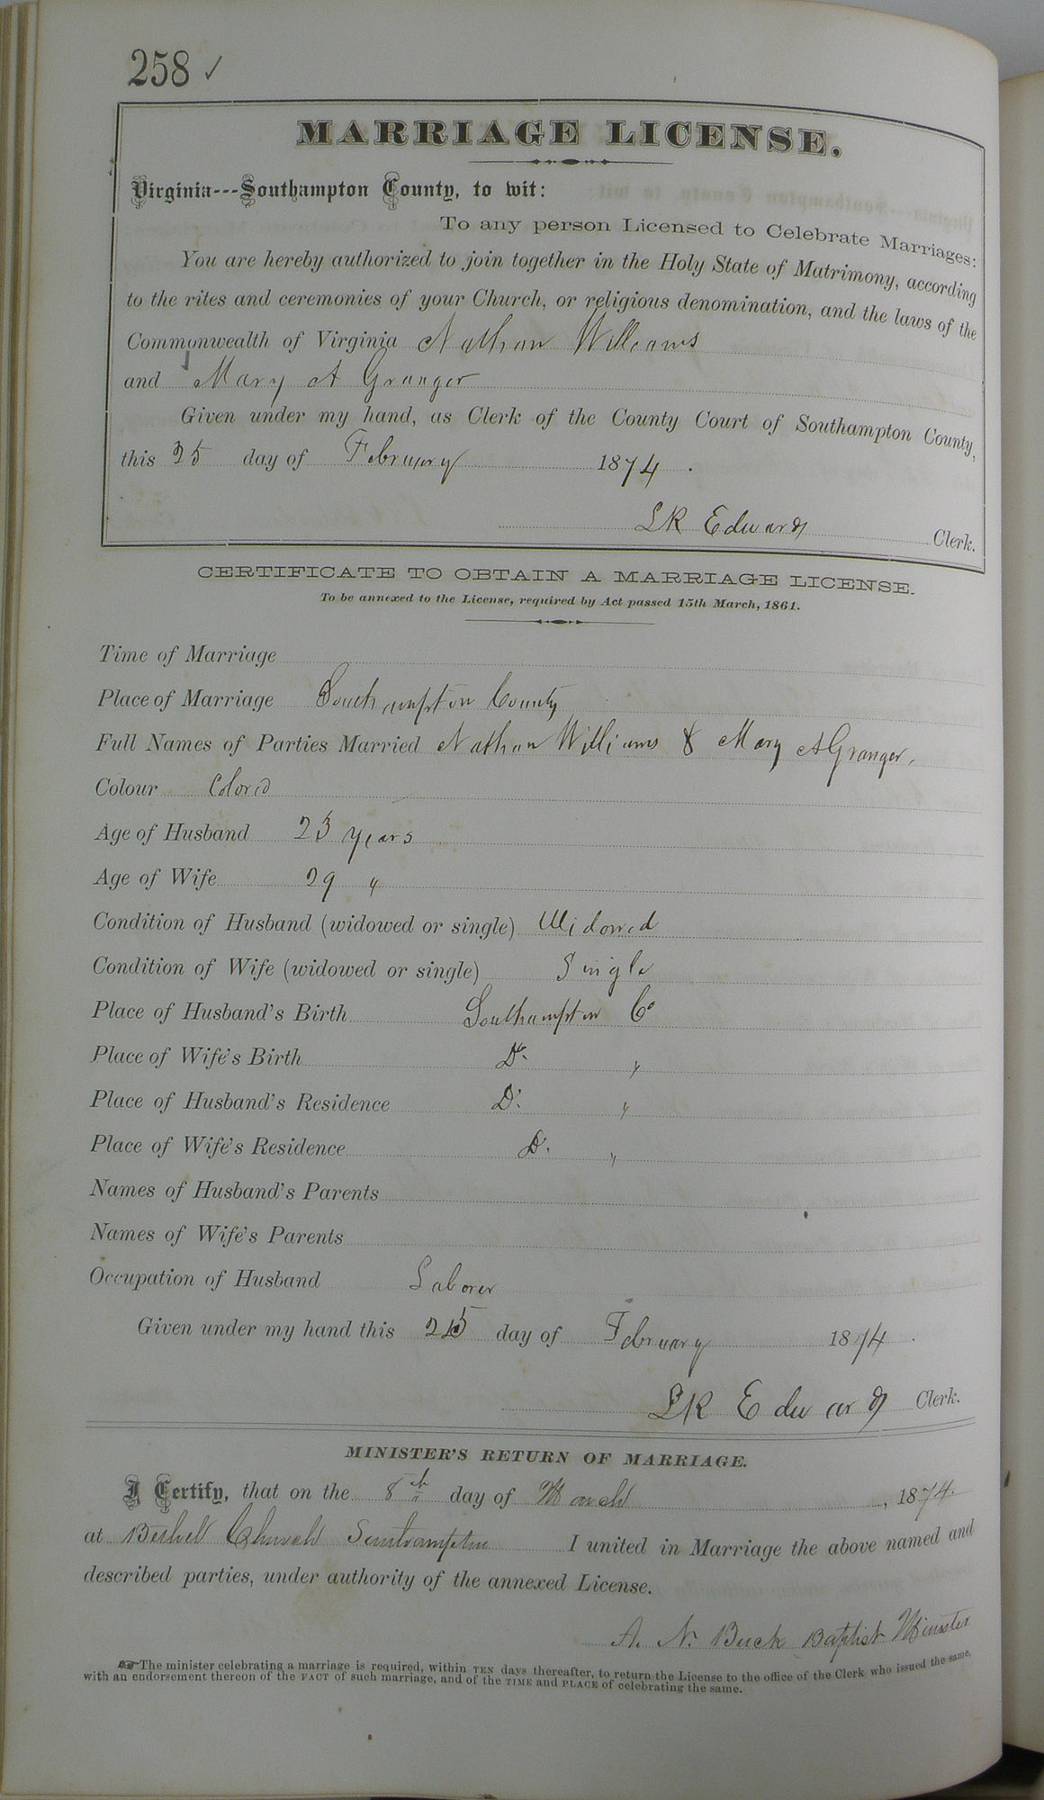 258 ✓
MARRIAGE LICENSE.
Virginia---Southampton County, to wit:
To any person Licensed to Celebrate Marriages:
You are hereby authorized to join together in the Holy State of Matrimony, according
to the rites and ceremonies of your Church, or religious denomination, and the laws of the
Commonwealth of Virginia Nathan Williams
and Mary A Granger
Given under my hand, as Clerk of the County Court of Southampton County,
this 25 day of February 1874.
LR Edwards Clerk.
CERTIFICATE TO OBTAIN A MARRIAGE LICENSE.
To be annexed to the License, required by Act passed 15th March, 1861.
Time of Marriage
Place of Marriage Southampton County
Full Names of Parties Married Nathan Williams & Mary A Granger.
Colour Colored
Age of Husband 23 years
Age of Wife 29 "
Condition of Husband (widowed or single) Widowed
Condition of Wife (widowed or single) Single
Place of Husband's Birth Southampton Co
Place of Wife's Birth Do. "
Place of Husband's Residence Do. "
Place of Wife's Residence Do. "
Names of Husband's Parents
Names of Wife's Parents
Occupation of Husband Laborer
Given under my hand this 25 day of February 1874.
LR Edwards Clerk.
MINISTER'S RETURN OF MARRIAGE.
I Certify, that on the 8th day of March, 1874.
at Bethel Church Southampton I united in Marriage the above named and
described parties, under authority of the annexed License.
A. N. Buck Baptist Minister
☞The minister celebrating a marriage is required, within TEN days thereafter, to return the License to the office of the Clerk who issued the same,
with an endorsement thereon of the FACT of such marriage, and of the TIME and PLACE of celebrating the same.